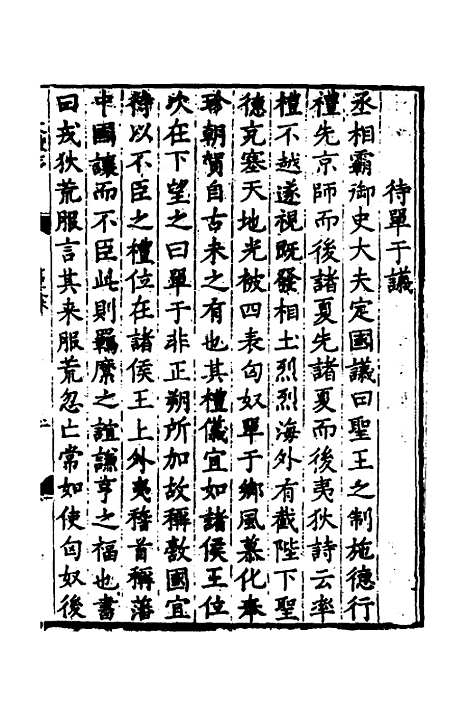 待單于議
丞相霸御史大夫定國議曰聖王之制施德行
禮先京師而後諸夏先諸夏而後夷狄詩云率
禮不越遂視既發相土烈烈海外有截陛下聖
德充塞天地光被四表匈奴單于鄉風慕化奉
珍朝賀自古未之有也其禮儀宜如諸侯王位
次在下望之曰單于非正朔所加故稱敵國宜
待以不臣之禮位在諸侯王上外夷稽首稱藩
中國讓而不臣此則羈縻之誼謙亨之福也書
曰戎狄荒服言其来服荒忽亡常如使匈奴後